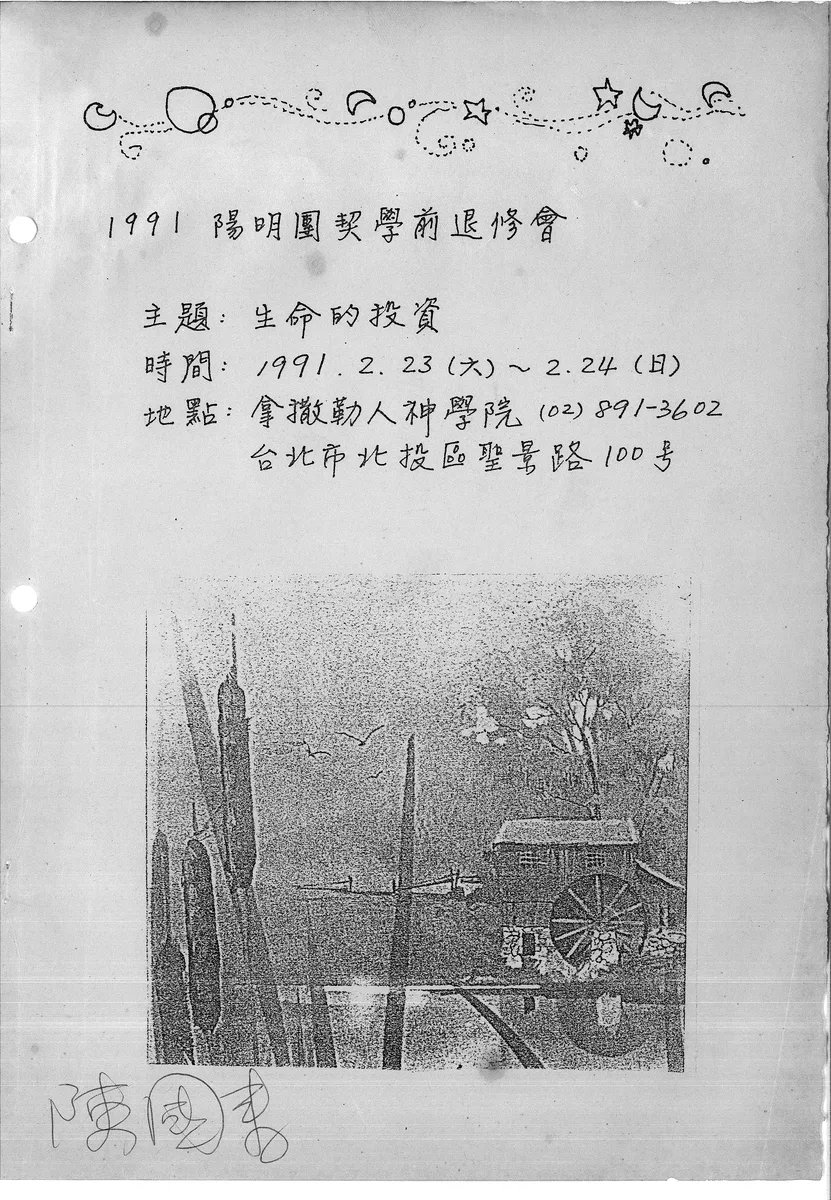 1991 陽明團契學前退修會
主題: 生命的投資
時間: 1991. 2. 23 (六) ~ 2. 24 (日)
地點: 拿撒勒人神學院 (02) 891-3602
台北市北投區聖景路100号
陳國